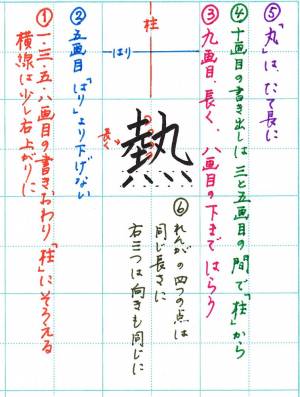 ① 一、三、五、八画目の書きおわり「柱」にそろえる
横線は少し右上がりに
② 五画目「はり」より下げない
③ 九画目、長く、八画目の下まではらう
④ 十画目の書き出しは三と五画目の間で「柱」から
⑤ 「丸」は、たて長に
⑥ れんがの四つの点は
同じ長さに
右三つは向きも同じに
柱
はり
長く
熱